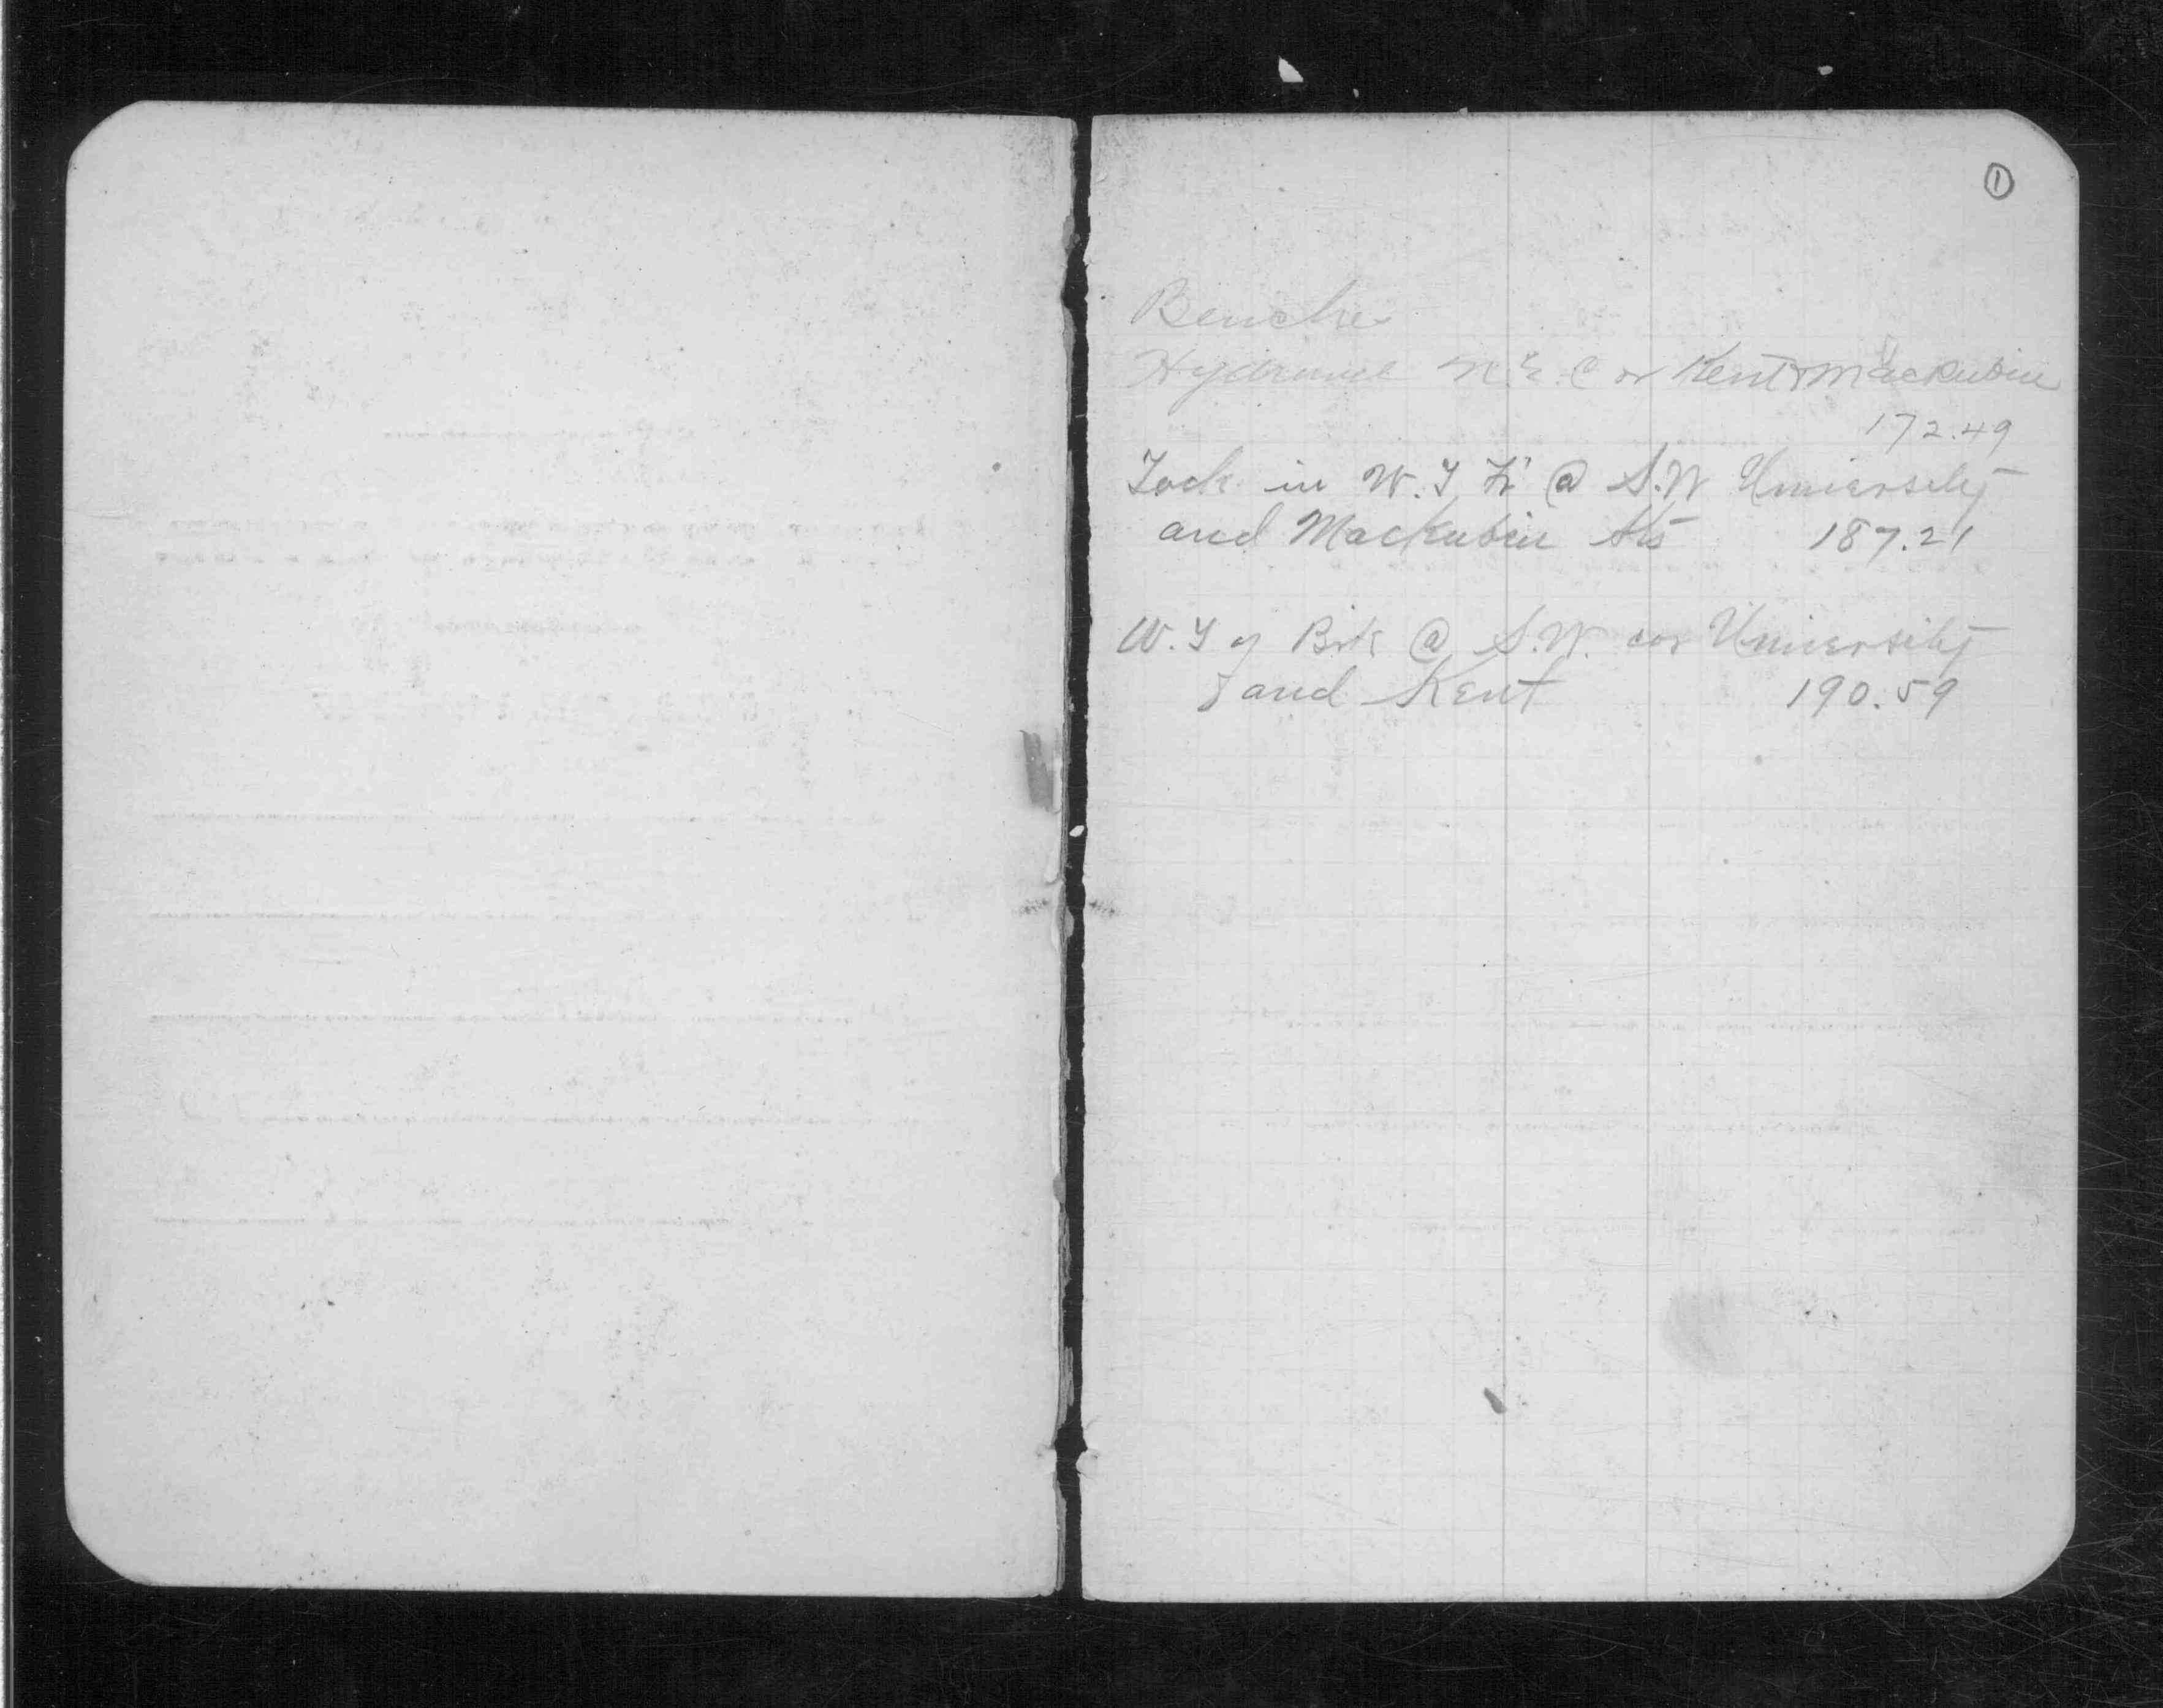 ①
Benches
Hydrant N.E. Cor Kent & Mackubin
172.49
in W. T @ S.W University
and Mackubin Sts 187.21
W. T of @ S.W. cor University
and Kent 190.59